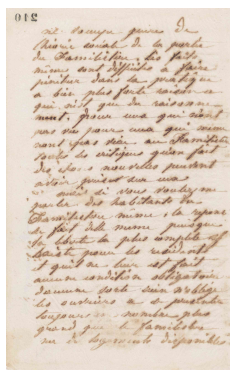 210
ne s'occupe guère de
théorie sociale de la portée
du Familistère. Les faits
mêmes sont difficiles à faire
pénétrer dans la pratique
à bien plus forte raison ce
qui n'est que du raisonne-
ment, pour ceux qui n'ont
pas vu pour ceux qui
sont pas au Familistère
toutes les critiques qu'on fait
des choses nouvelles peuvent
avoir prise sur eux
mais si vous voulez me
parler des habitants du
Familistère même, la réponse
se fait d'elle même puisque
la liberté la plus complète
existe pour les
et qu'il ne leur est fait
aucune condition obligatoire
d'aucune sorte rien n'oblige
les ouvriers à se présenter
toujours en nombre plus
grand que le Familistère
n'a de logements disponibles